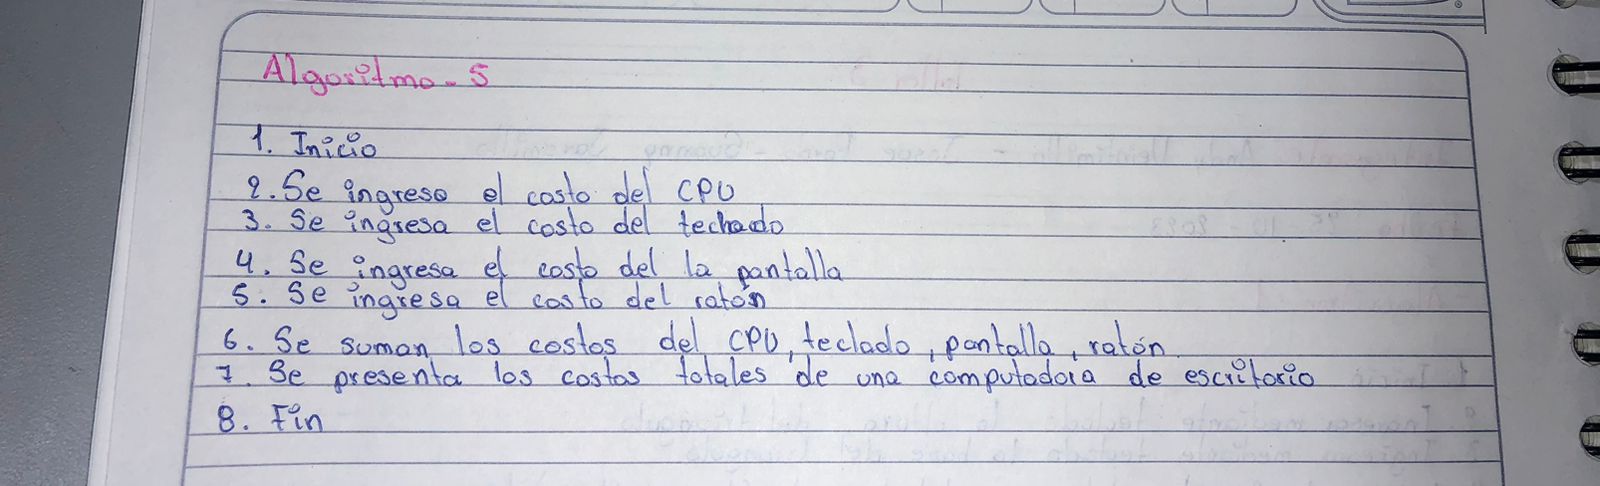 Algoritmo - 5
1. Inicio
2. Se ingreso el costo del CPU
3. Se ingresa el costo del techado
4. Se ingresa el costo del la pantalla
5. Se ingresa el costo del ratón
6. Se suman los costos del CPU, teclado, pantalla, ratón.
7. Se presenta los costos totales de una computadora de escritorio
8. Fin